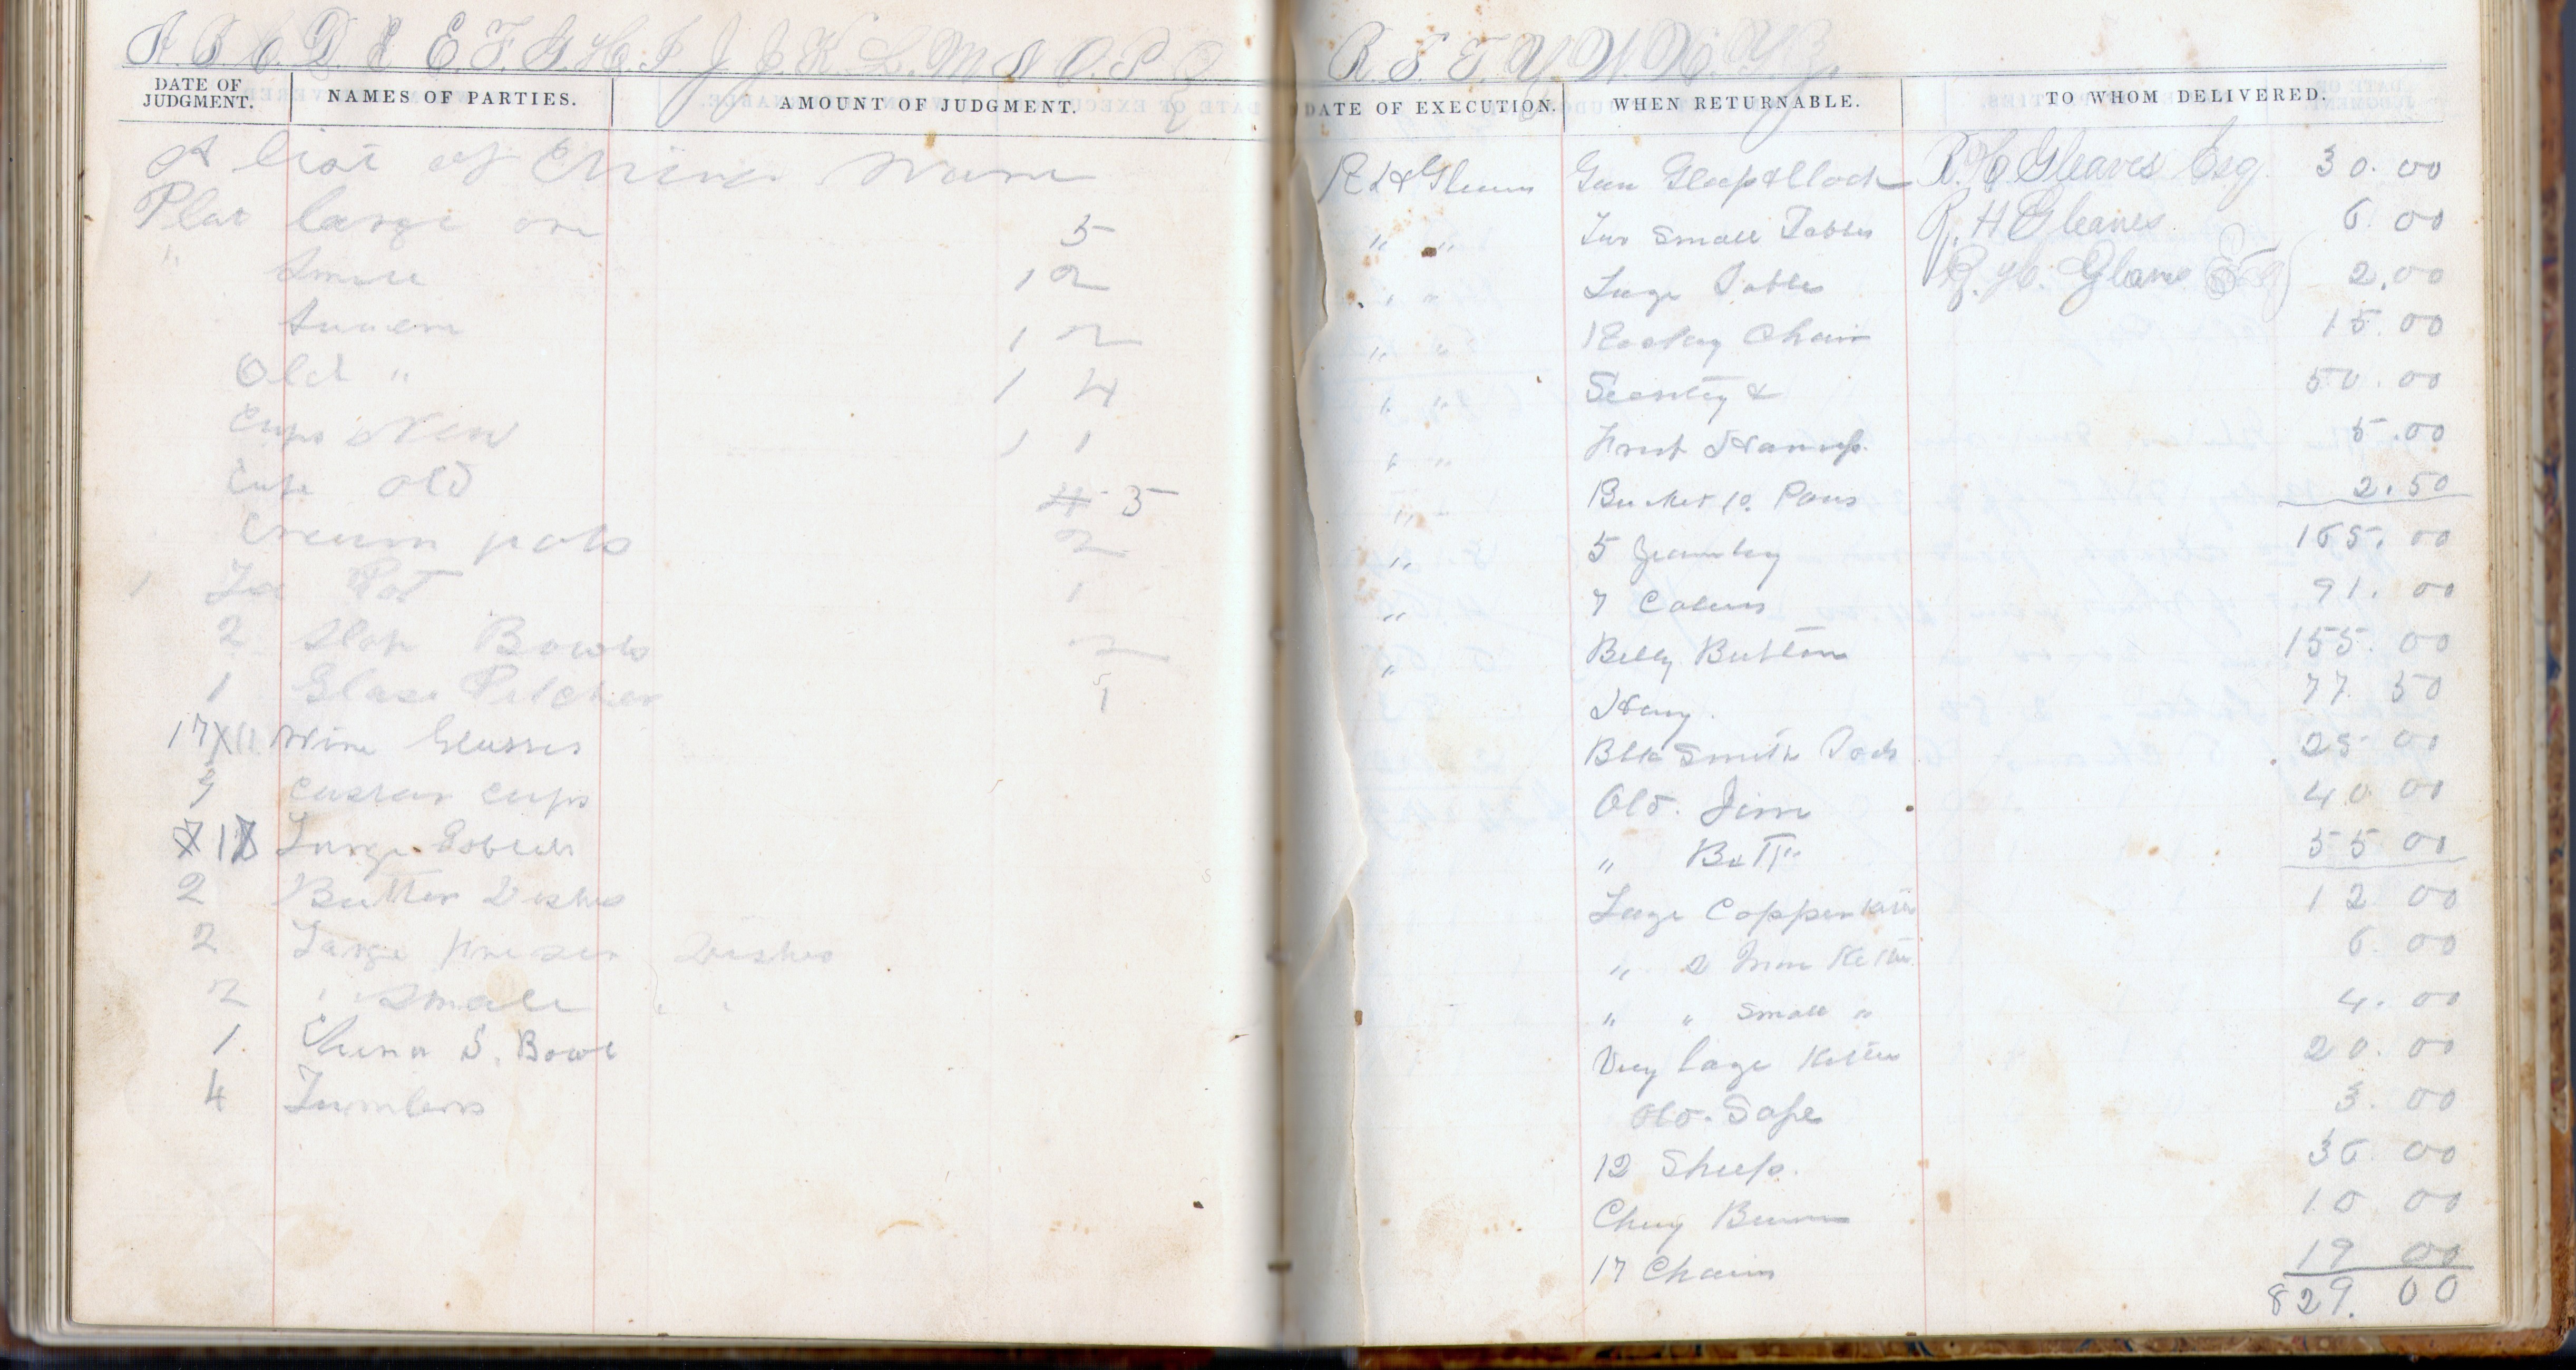 A. B. C. D. E E. F. G. H. I J J. K. L. M N O. P Q
DATE OF JUDGMENT. NAMES OF PARTIES. AMOUNT OF JUDGMENT.
A list of China Ware
Plat large on 5
" Smale 12
12
Old " 14
Cups New 11
Cups Old 4 5
Cream pots 2
1 Tea Pot 1
2 Slop Bowls 2
1 Glass Pitcher 1
17 Wine Glasses
9 Custar cups
Large Goblets
2 Butter Dishes
2 Large Dishes
2 " Smale " "
1. China S. Bowl
4 Tumblers
R. S. T. U. V. W. X. Y Z.
DATE OF EXECUTION. WHEN RETURNABLE. TO WHOM DELIVERED.
Clock R. H. Gleaves Esq 30.00
" " Two Small Tables R. H Gleaves 6.00
" " Large Table R. H. Gleaves Esq 2.00
" " Chair 15.00
" " 50.00
" " 5.00
" " Bucket 10. Pans 2.50
" 5 165.00
" 7 91.00
" 155.00
77.50
Blk Smith Tools 25 00
Old. Jim 40 00
" 55 00
Large Copper Kettle 12 00
" 2 Iron Kettles 6.00
" " Small " 4.00
Very large Kettle 20.00
Old. Safe 3.00
12 Sheep. 36.00
10 00
17 Chairs 19 00
829.00